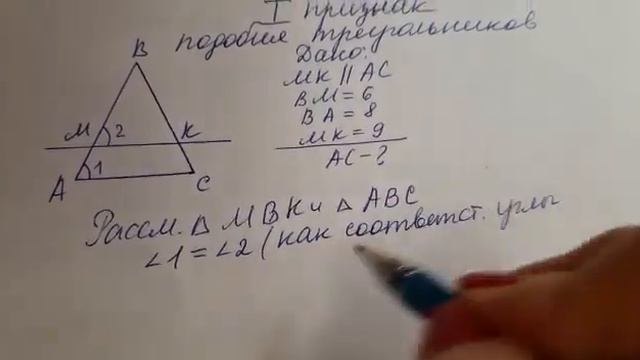 I признак
подобия треугольников
Дано:
MK || AC
BM = 6
BA = 8
MK = 9
AC - ?
B
M 2 K
A 1 C
Рассм. Δ MBK и Δ ABC
∠1 = ∠2 (как соответст. углы